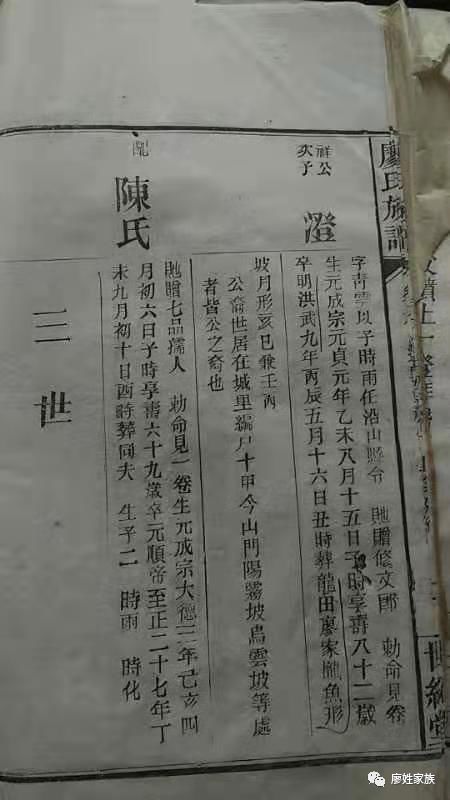 廖氏族譜
世綵堂
祥公
次子
澄
字靑雲以子時雨任沿山縣令 貤贈修文郎 勅命見卷
生元成宗元貞元年乙未八月十五日子時享壽八十二歲
卒明洪武九年丙辰五月十六日丑時葬龍田廖家㘭魚形
坡月形亥巳兼壬丙
公裔世居在城里編戶十甲今山門陽霧坡烏雲坡等處
者皆公之裔也
配
陳氏
貤贈七品孺人 勅命見一卷生元成宗大德三年己亥四
月初六日子時享壽六十九歲卒元順帝至正二十七年丁
未九月初十日酉時葬同夫 生子二 時雨 時化
三世
廖姓家族